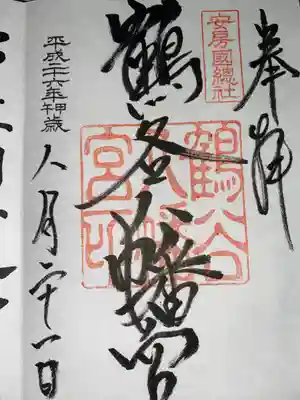 奉拝
安房國總社
鶴谷八幡宮
鶴谷八幡宮印
平成二十六年甲午歳
八月二十一日